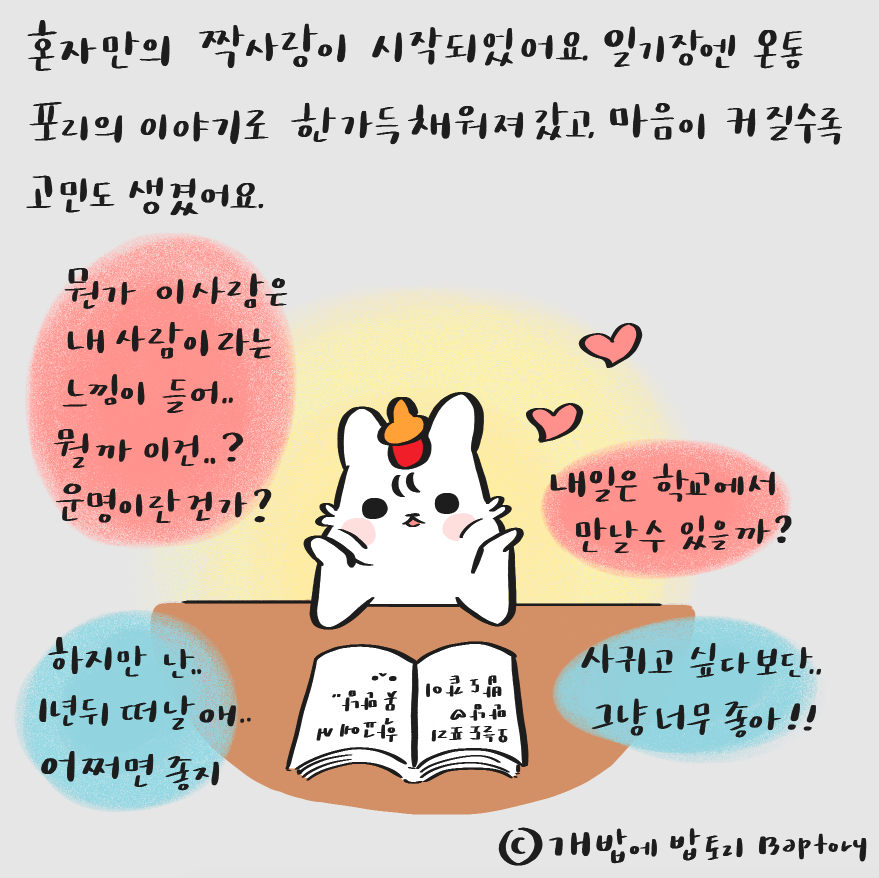 혼자만의 짝사랑이 시작되었어요. 일기장엔 온통
포리의 이야기로 한가득 채워져갔고, 마음이 커질수록
고민도 생겼어요.
뭔가 이사람은
내 사람이라는
느낌이 들어..
뭘까 이건..?
운명이란건가?
내일은 학교에서
만날수 있을까?
하지만 난..
1년뒤 떠날애..
어쩌면 좋지
사귀고 싶다보단..
그냥 너무 좋아!!
©개밥에 밥토리 Baptory